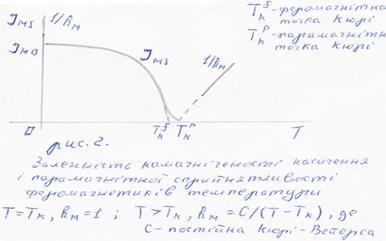 J_MS 1/k_M
J_MO
J_MS
1/k_M
T_K^f - феромагнітна
точка Кюрі
T_K^P - парамагнітна
точка Кюрі
0
T_K^f T_K^P
T
рис. 2.
Залежність намагніченості насичення
і парамагнітної сприйнятливості
феромагнетиків температури
T = T_K, k_M = 1 ; T > T_K, k_M = C/(T - T_K), де
C - постійна Кюрі - Ветерса